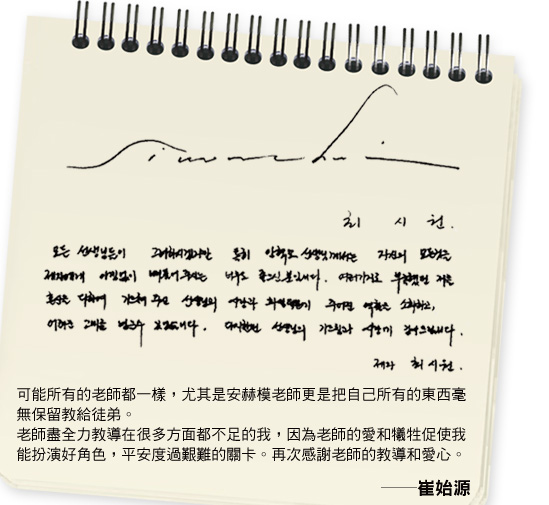 최 시 원.
모든 선생님들이 그러하시겠지만 특히 안혁모 선생님께서는 자신의 모든것을
제자에게 아낌없이 베풀어주시는 너무도 좋으신 분입니다. 여러가지로 부족했던 저를
혼신을 다하여 가르쳐 주신 선생님의 사랑과 희생덕분에 주어진 역할을 소화하고,
어려운 고비를 넘길수 있었습니다. 다시한번 선생님의 가르침과 사랑에 감사드립니다.
제자 최시원.
可能所有的老師都一樣，尤其是安赫模老師更是把自己所有的東西毫
無保留教給徒弟。
老師盡全力教導在很多方面都不足的我，因為老師的愛和犧牲促使我
能扮演好角色，平安度過艱難的關卡。再次感謝老師的教導和愛心。
──崔始源